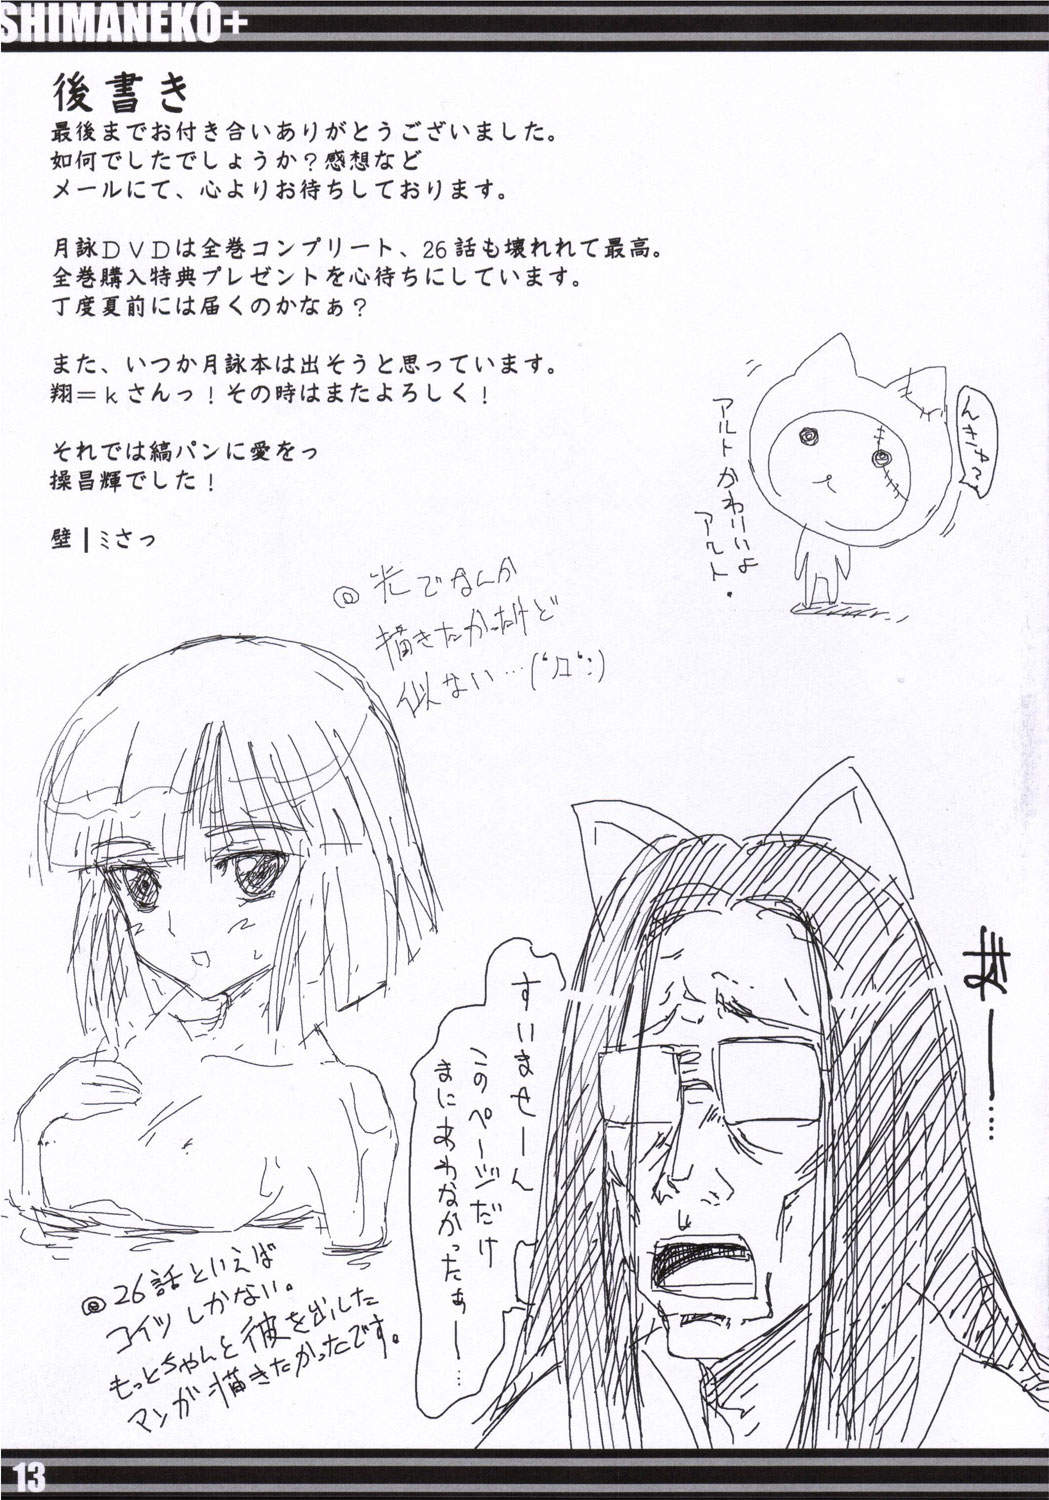 SHIMANEKO+
後書き
最後までお付き合いありがとうございました。
如何でしたでしょうか？感想など
メールにて、心よりお待ちしております。
月詠ＤＶＤは全巻コンプリート、26話も壊れれて最高。
全巻購入特典プレゼントを心待ちにしています。
丁度夏前には届くのかなぁ？
また、いつか月詠本は出そうと思っています。
翔＝ｋさんっ！その時はまたよろしく！
それでは縞パンに愛をっ
操昌輝でした！
壁┃ﾐさっ
んきゅ〜
アルトかわいいよ
アルト・
@光でなんか
描きたかったけど
似ない…
まー……
すいませーん
このページだけ
まにあわなかったぁー…
@26話といえば
コイツしかない。
もっとちゃんと彼を出した
マンガ描きたかったです。
13